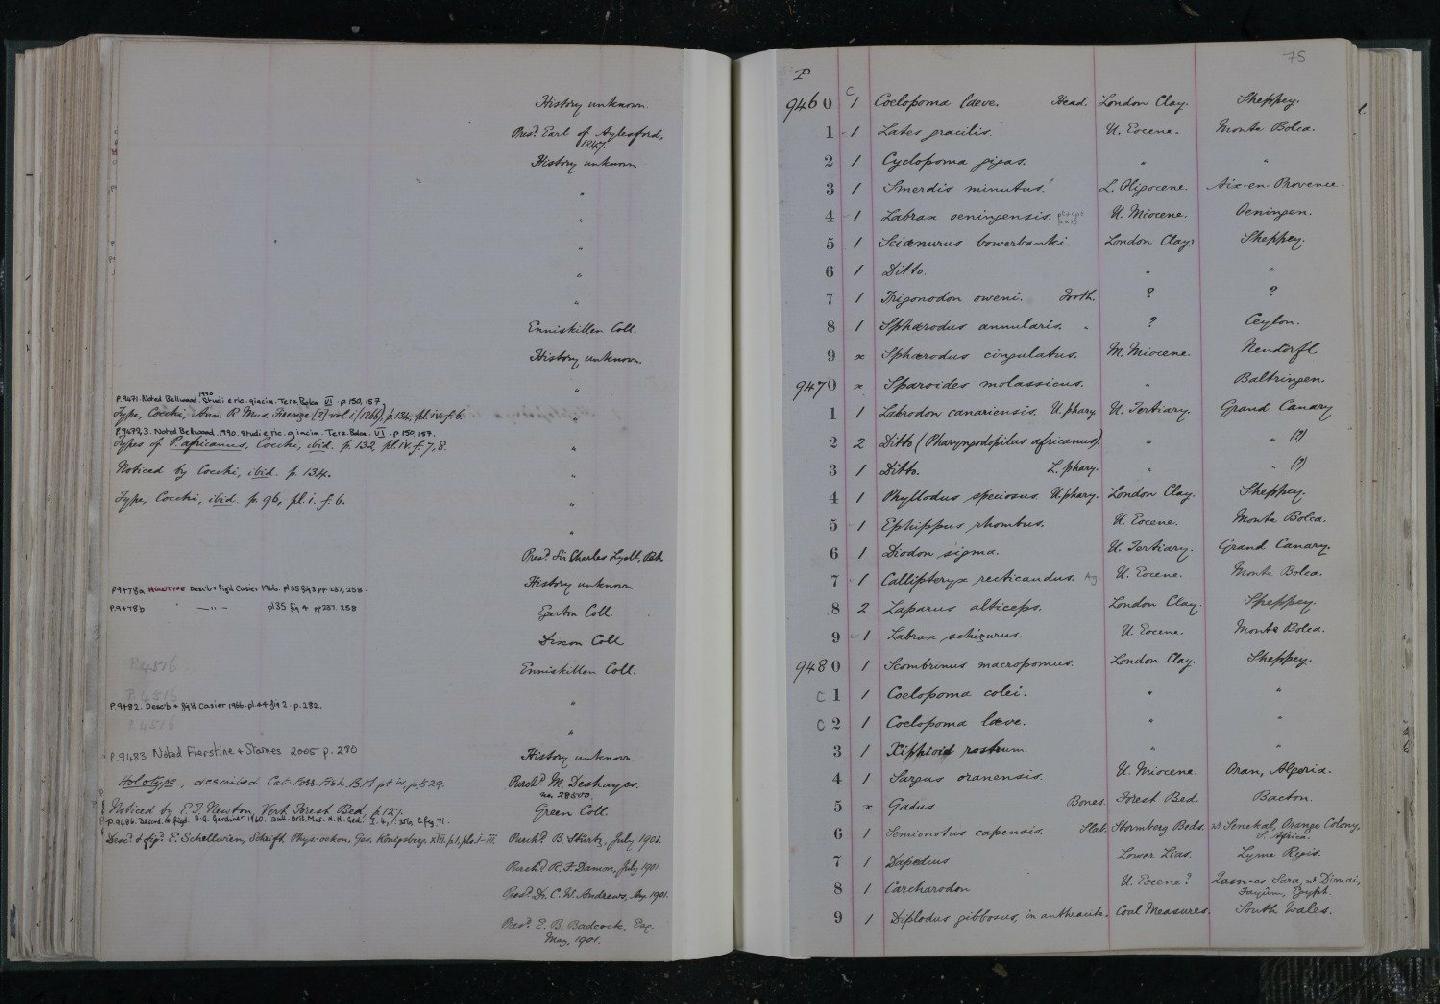 History unknown.
Pres.d Earl of Aylesford,
1847.
History unknown
"
"
"
"
"
Enniskillen Coll.
History unknown.
"
P.9471. Noted Bellwood. 1990 Studi e ric. giacim. Terz. Bolca VI . p 150, 157
Type, Cocchi, Ann. R. Mus. Firenze [2] vol. i (1866), p. 134, pl. iv. f. 6.
"
P.9472,3. Noted Bellwood. 1990. Studi e ric. giacim. Terz. Bolca. VI . p 150, 157.
Types of P. africanus, Cocchi, ibid. p. 132, pl. iv. f. 7, 8.
"
Noticed by Cocchi, ibid. p. 134.
"
Type, Cocchi, ibid. p. 96, pl. i. f. 6.
"
Pres.d Sir Charles Lyell, Bart.
P.9478a HOLOTYPE Descib + fig'd Casier 1966. pl 35 fig 3 pp 257, 258.
History unknown
P.9478b " — " — pl 35 fig 4 pp 257. 258
Egerton Coll.
Dixon Coll.
P.4516
Enniskillen Coll.
P.4516
P.9482. Descib + fig'd Casier 1966. pl. 44 fig 2. p. 282.
"
P.4516
P.9483 Noted Fierstine + Starnes 2005 p. 280
History unknown.
Holotype, described Cat. Foss. Fish. B.M pt iv, p. 529.
Purch.d M. Deshayes.
no. 28500.
Noticed by E.T. Newton, Vert. Forest Bed, p. 127.
Green Coll.
P.9486. Descrd. & figd. B.G. Gardiner 1960. Bull. Brit. Mus. N.H. Geol.
Desc.d & fig.d E. Schellwien, Schrift. Phys.-oekon. Ges. Königsberg. pls. I–III.
Purch.d B. Stürtz, July 1901.
Purch.d R.F. Damon, July 1901
Pres.d Dr. C.W. Andrews, 1901.
Pres.d E. B. Badcock, Esq.
May, 1901.
75
P
9460 C 1 Coelopoma læve. Head. London Clay. Sheppey.
1 1 Lates gracilis. U. Eocene. Monte Bolca.
2 1 Cyclopoma gigas. " "
3 1 Smerdis minutus. L. Oligocene. Aix-en-Provence.
4 1 Labrax oeningensis. U. Miocene. Oeningen.
5 1 Sciænurus bowerbanki London Clay. Sheppey.
6 1 Ditto. " "
7 1 Trigonodon oweni. Tooth. ? ?
8 1 Sphærodus annularis. " ? Ceylon.
9 x Sphærodus cingulatus. M. Miocene. Neudörfl
9470 x Sparoides molassicus. " Baltringen.
1 1 Labrodon canariensis. U. phary. U. Tertiary. Grand Canary
2 2 Ditto (Pharyngodopilus africanus) " " (?)
3 1 Ditto. L. phary. " " (?)
4 1 Phyllodus speciosus. U. phary. London Clay. Sheppey.
5 1 Ephippus rhombus. U. Eocene. Monte Bolca.
6 1 Diodon sigma. U. Tertiary. Grand Canary.
7 1 Callipteryx recticaudus. Ag U. Eocene. Monte Bolca.
8 2 Laparus alticeps. London Clay. Sheppey.
9 1 Labrax schizurus. U. Eocene. Monte Bolca.
9480 1 Scombrinus macropomus. London Clay. Sheppey.
C 1 1 Coelopoma colei. " "
C 2 1 Coelopoma læve. " "
3 1 Xiphioid rostrum " "
4 1 Sargus oranensis. U. Miocene Oran, Algeria.
5 x Gadus Bones. Forest Bed. Bacton.
6 1 Semionotus capensis. Slab. Stormberg Beds. Senekal, Orange Colony,
S. Africa.
7 1 Dapedius Lower Lias. Lyme Regis.
8 1 Carcharodon U. Eocene? Qasr-as Sara, Dimai,
Fayûm, Egypt.
9 1 Diplodus gibbosus, in anthracite. Coal Measures. South Wales.